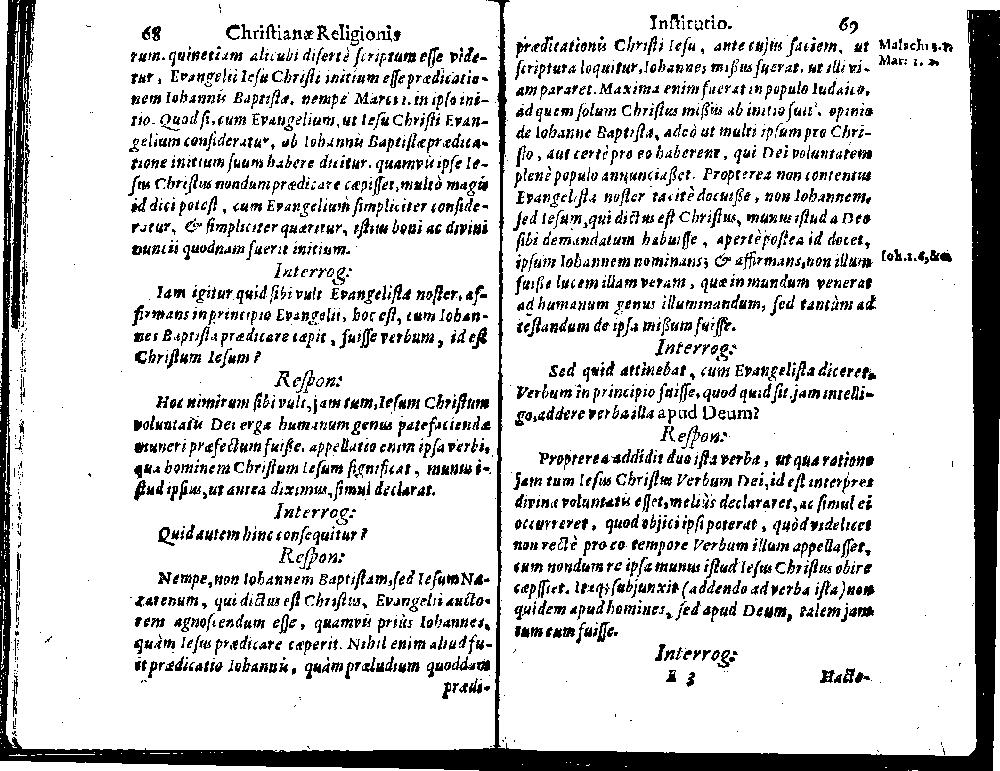 68 Christianæ Religionis
rum. quinetiam alicubi disertè scriptum esse vide-
tur, Evangelii Iesu Christi initium esse prædicatio-
nem Iohannis Baptistæ. nempe Marci 1. in ipso ini-
tio. Quod si, cum Evangelium, ut Iesu Christi Evan-
gelium consideratur, ab Iohannis Baptistæ prædica-
tione initium suum habere dicitur. quamvis ipse Ie-
sus Christus nondum prædicare cæpisset, multò magis
id dici potest, cum Evangelium simpliciter conside-
ratur, & simpliciter quæritur, istius boni ac divini
nuncii quodnam fuerit initium.
Interrog:
Iam igitur quid sibi vult Evangelista noster, af-
firmans in principio Evangelii, hoc est, cum Iohan-
nes Baptista prædicare cæpit, fuisse verbum, id est
Christum Iesum?
Respon:
Hoc nimirum sibi vult, jam tum, Iesum Christum
voluntatis Dei erga humanum genus patefaciendæ
muneri præfectum fuisse. appellatio enim ipsa verbi,
qua hominem Christum Iesum significat, munus i-
stud ipsius, ut antea diximus, simul declarat.
Interrog:
Quid autem hinc consequitur?
Respon:
Nempe, non Iohannem Baptistam, sed Iesum Na-
zarenum, qui dictus est Christus, Evangelii aucto-
rem agnoscendum esse, quamvis priùs Iohannes,
quàm Iesus prædicare cæperit. Nihil enim aliud fu-
it prædicatio Iohannis, quàm præludium quoddam
prædi-
Institutio. 69
prædicationis Christi Iesu, ante cujus faciem, ut
scriptura loquitur, Iohannes mißus fuerat, ut illi vi-
am pararet. Maxima enim fuerat in populo Iudaico,
ad quem solum Christus mißus ab initio fuit, opinio
de Iohanne Baptista, adeò ut multi ipsum pro Chri-
sto, aut certè pro eo haberent, qui Dei voluntatem
plenè populo annunciaßet. Propterea non contentus
Evangelista noster tacitè docuiße, non Iohannem,
sed Iesum, qui dictus est Christus, munus istud a Deo
sibi demandatum habuisse, apertè postea id docet,
ipsum Iohannem nominans; & affirmans, non illum
fuiße lucem illam veram, quæ in mundum venerat
ad humanum genus illuminandum, sed tantùm ad
testandum de ipsa mißum fuisse.
Interrog:
Sed quid attinebat, cum Evangelista diceret,
Verbum in principio fuisse, quod quid sit jam intelli-
go, addere verba illa apud Deum?
Respon:
Propterea addidit duo ista verba, ut qua ratione
jam tum Iesus Christus Verbum Dei, id est interpres
divinæ voluntatis esset, meliùs declararet, ac simul ei
occurreret, quod objici ipsi poterat, quòd videlicet
non rectè pro eo tempore Verbum illum appellasset,
cum nondum re ipsa munus istud Iesus Christus obire
cæpisset. Itaq; subjunxit (addendo ad verba ista) non
quidem apud homines, sed apud Deum, talem jam
tum eum fuisse.
Interrog:
E 3 Hacte-
Malach: 3.
Mar: 1. 2.
Ioh. 1. 6, &c.